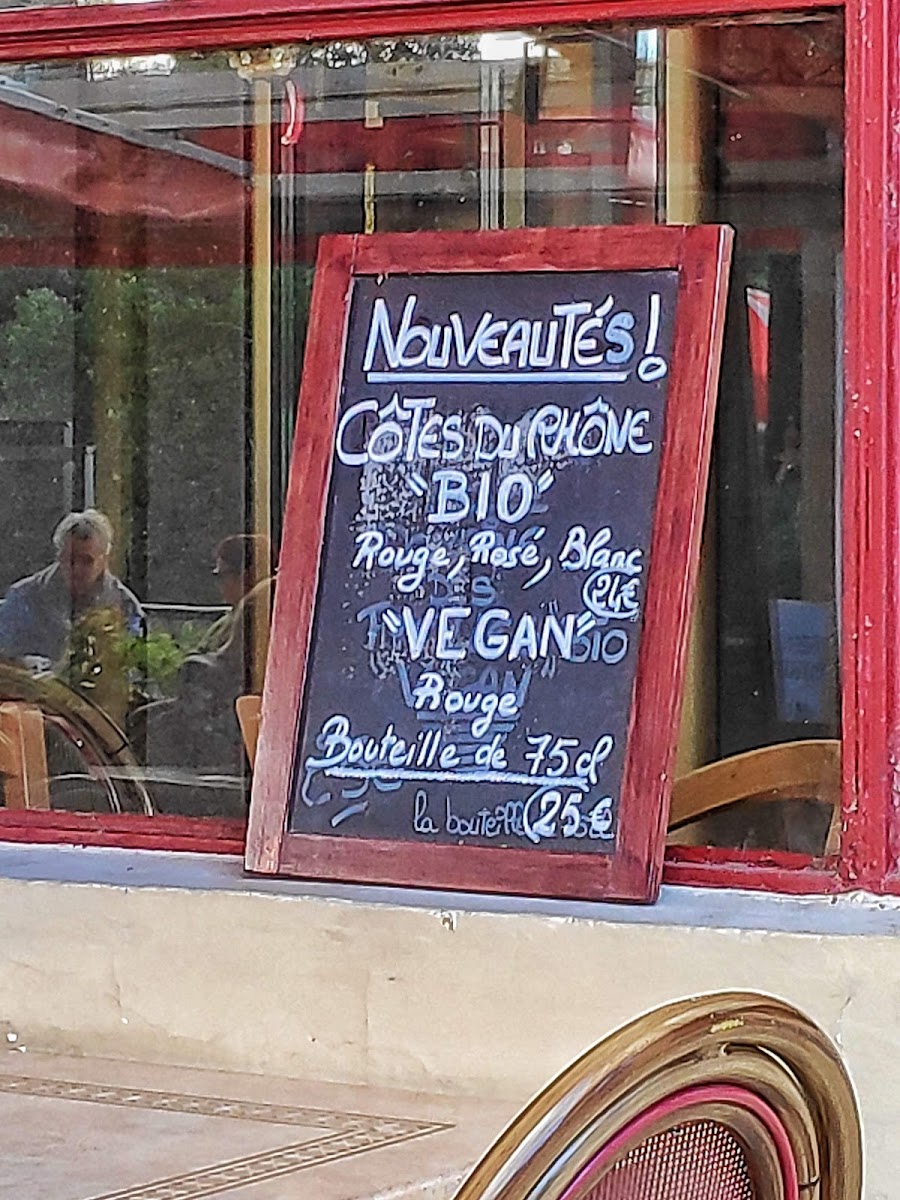 NOUVEAUTÉS !
CÔTES DU RHÔNE
"BIO"
Rouge, Rosé, Blanc
24€
"VEGAN" BIO
Rouge
Bouteille de 75cl
la bouteille 25€